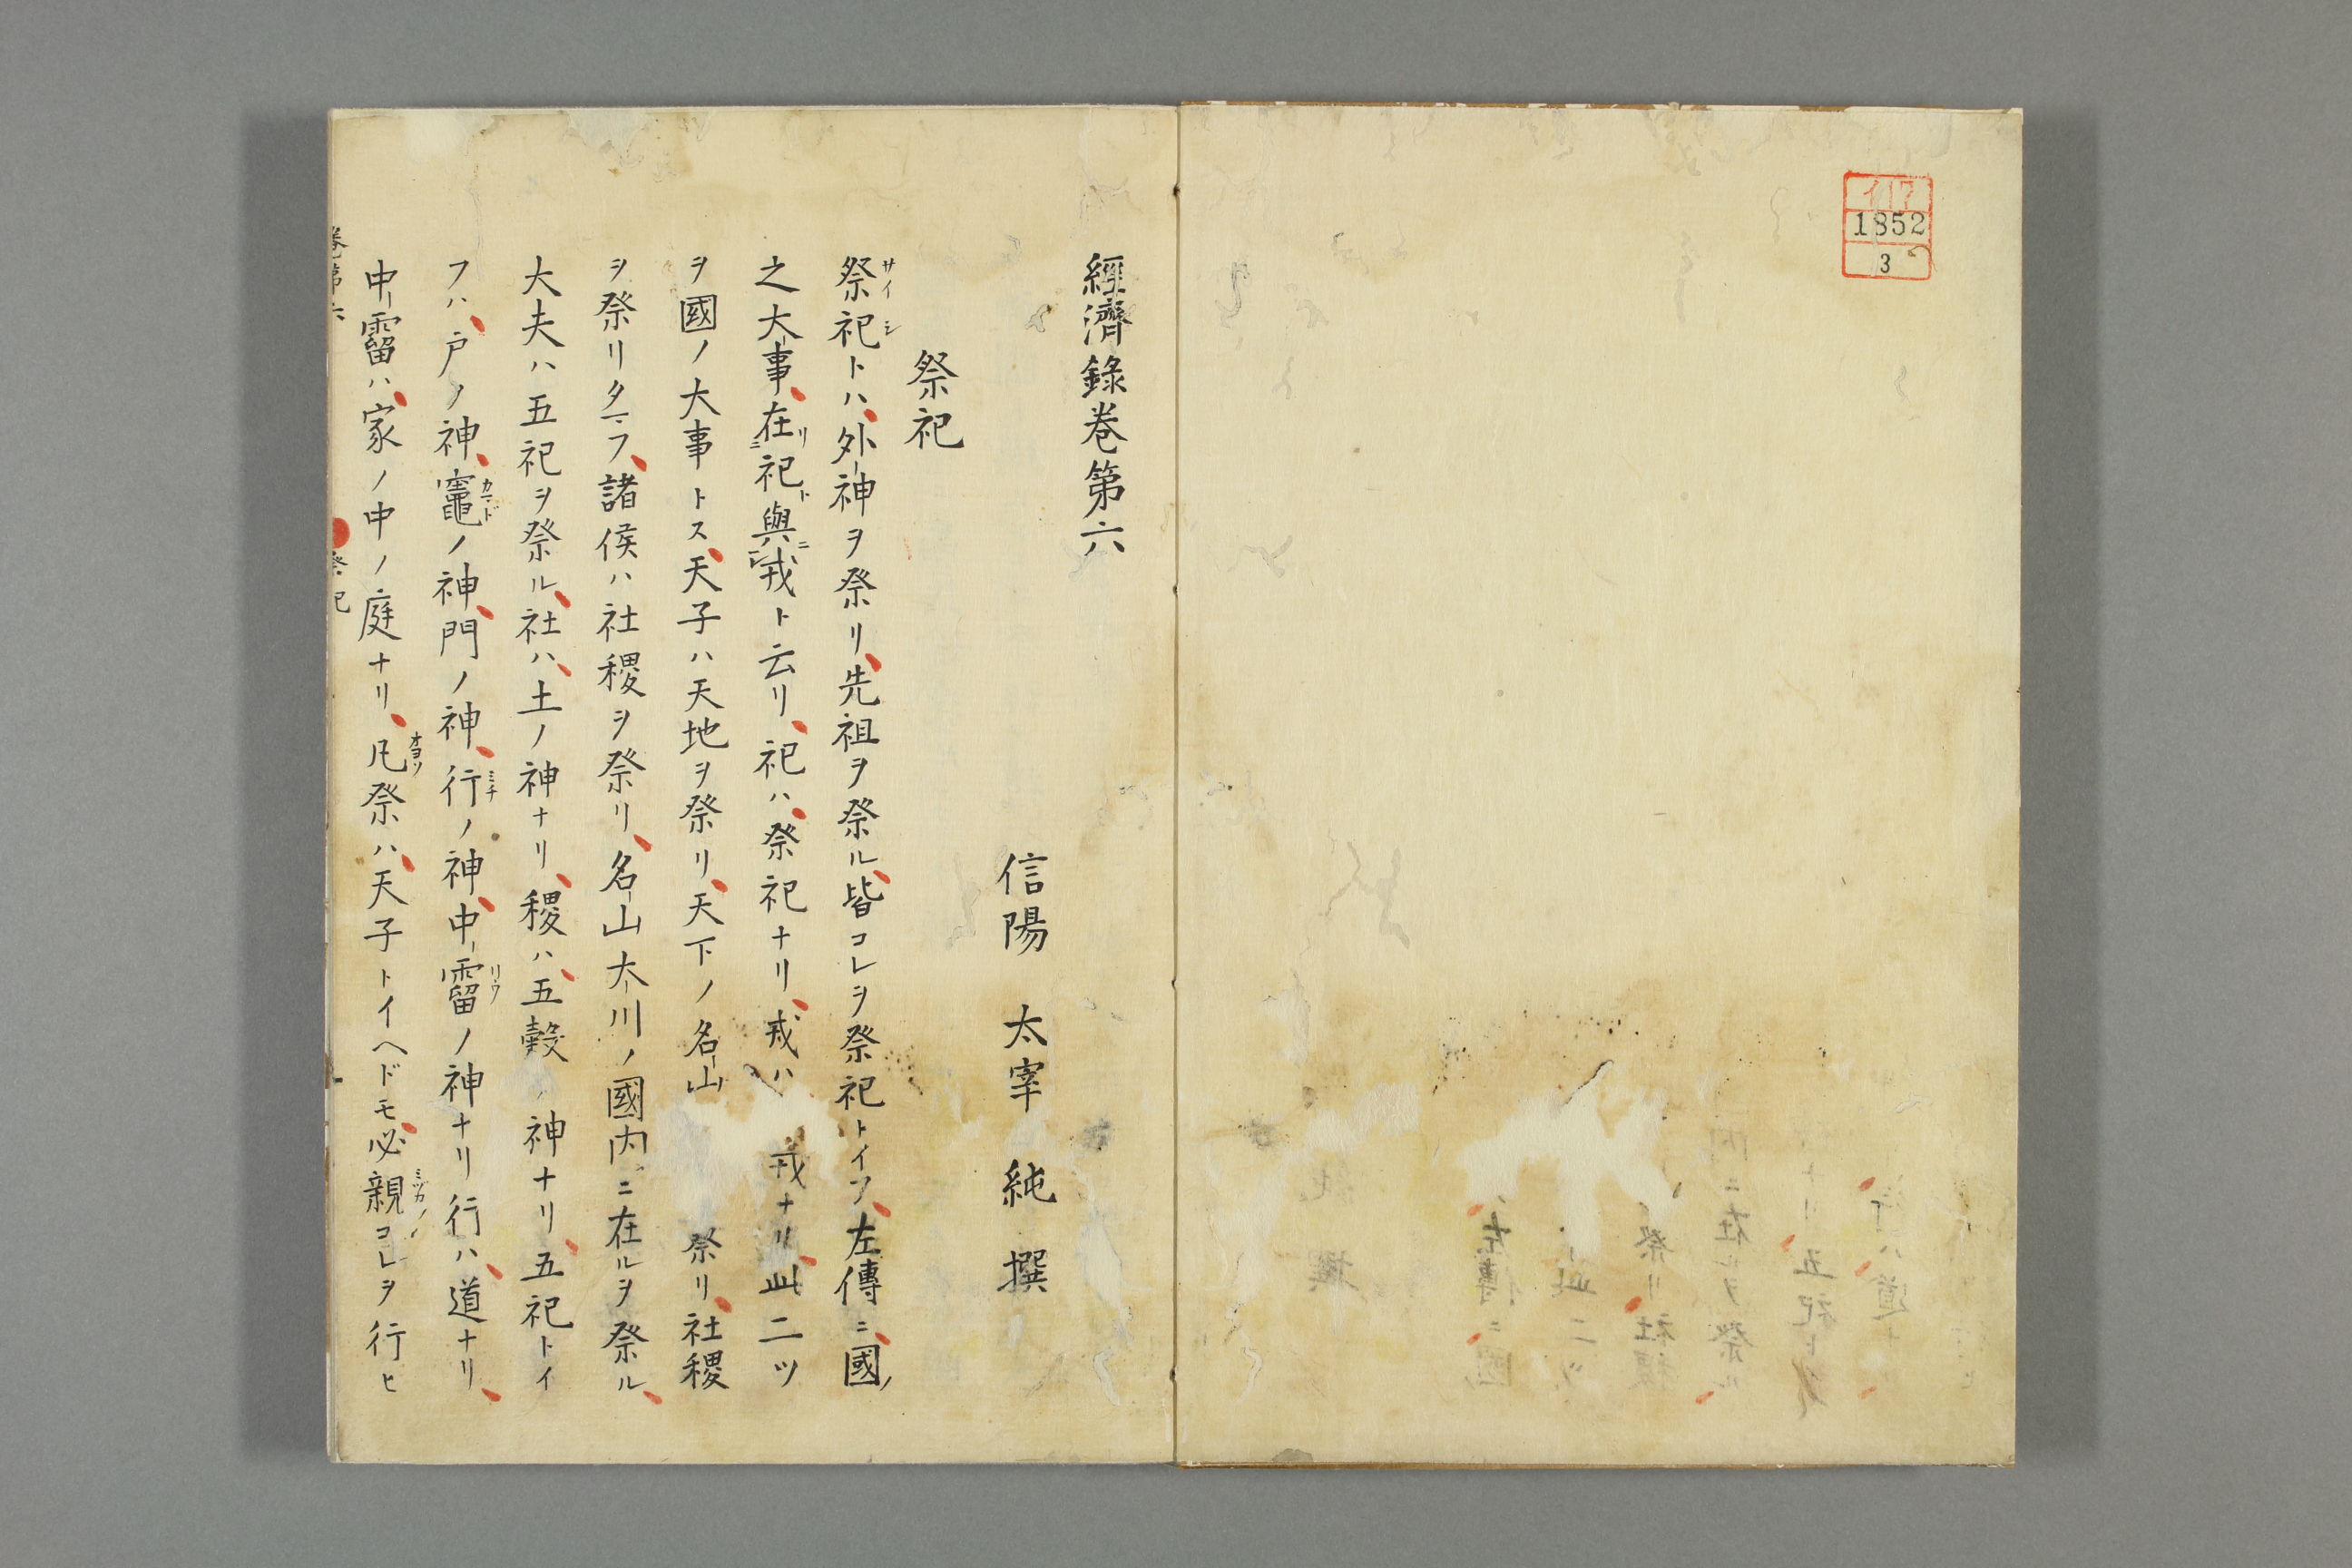 イ17
1852
3
經濟錄卷第六
信陽 太宰 純 撰
祭祀
祭祀トハ、外神ヲ祭リ、先祖ヲ祭ル、皆コレヲ祭祀トイフ、左傳ニ、國ノ
之大事、在祀與戎ト云リ、祀ハ、祭祀ナリ、戎ハ 戎ナリ、此二ツ
ヲ國ノ大事トス、天子ハ天地ヲ祭リ、天下ノ名山 祭リ、社稷
ヲ祭リタマフ、諸侯ハ社稷ヲ祭リ、名山大川ノ國内ニ在ルヲ祭ル、
大夫ハ五祀ヲ祭ル、社ハ、土ノ神ナリ、稷ハ、五穀ノ神ナリ、五祀トイ
フハ、戸ノ神、竈ノ神、門ノ神、行ノ神、中霤ノ神ナリ行ハ、道ナリ、
中霤ハ、家ノ中ノ庭ナリ、凡祭ハ、天子トイヘドモ、必親コレヲ行ヒ
卷第六
祭祀